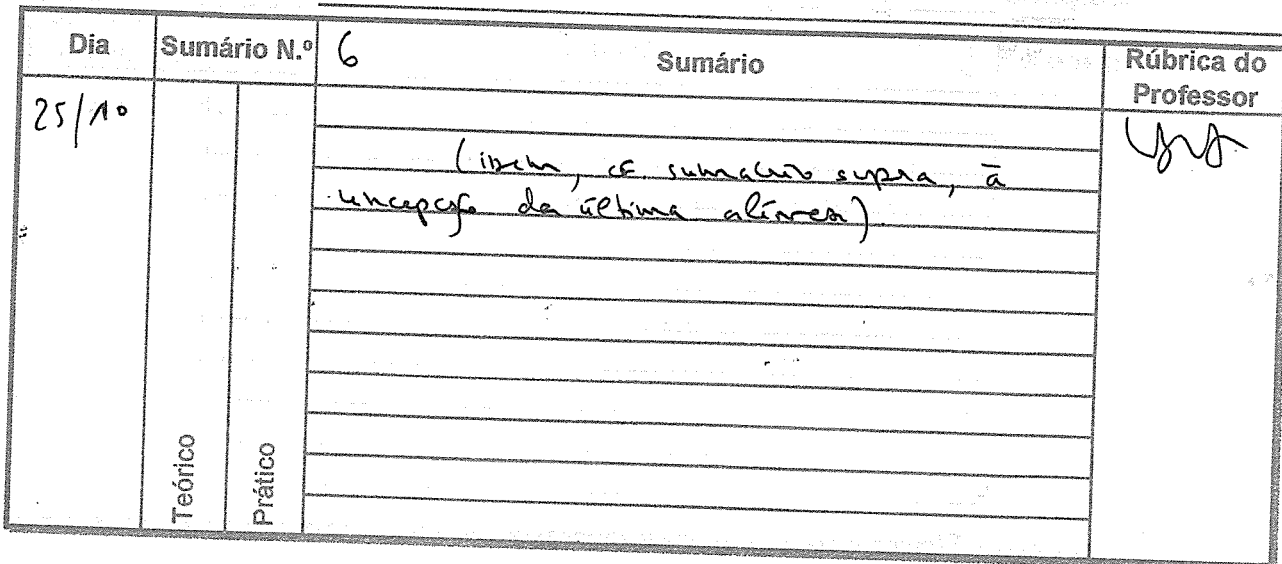 Dia Sumário N.º 6 Sumário Rúbrica do Professor
25/10
(idem, cf. sumário supra, à
excepção da última alínea)
Teórico
Prático